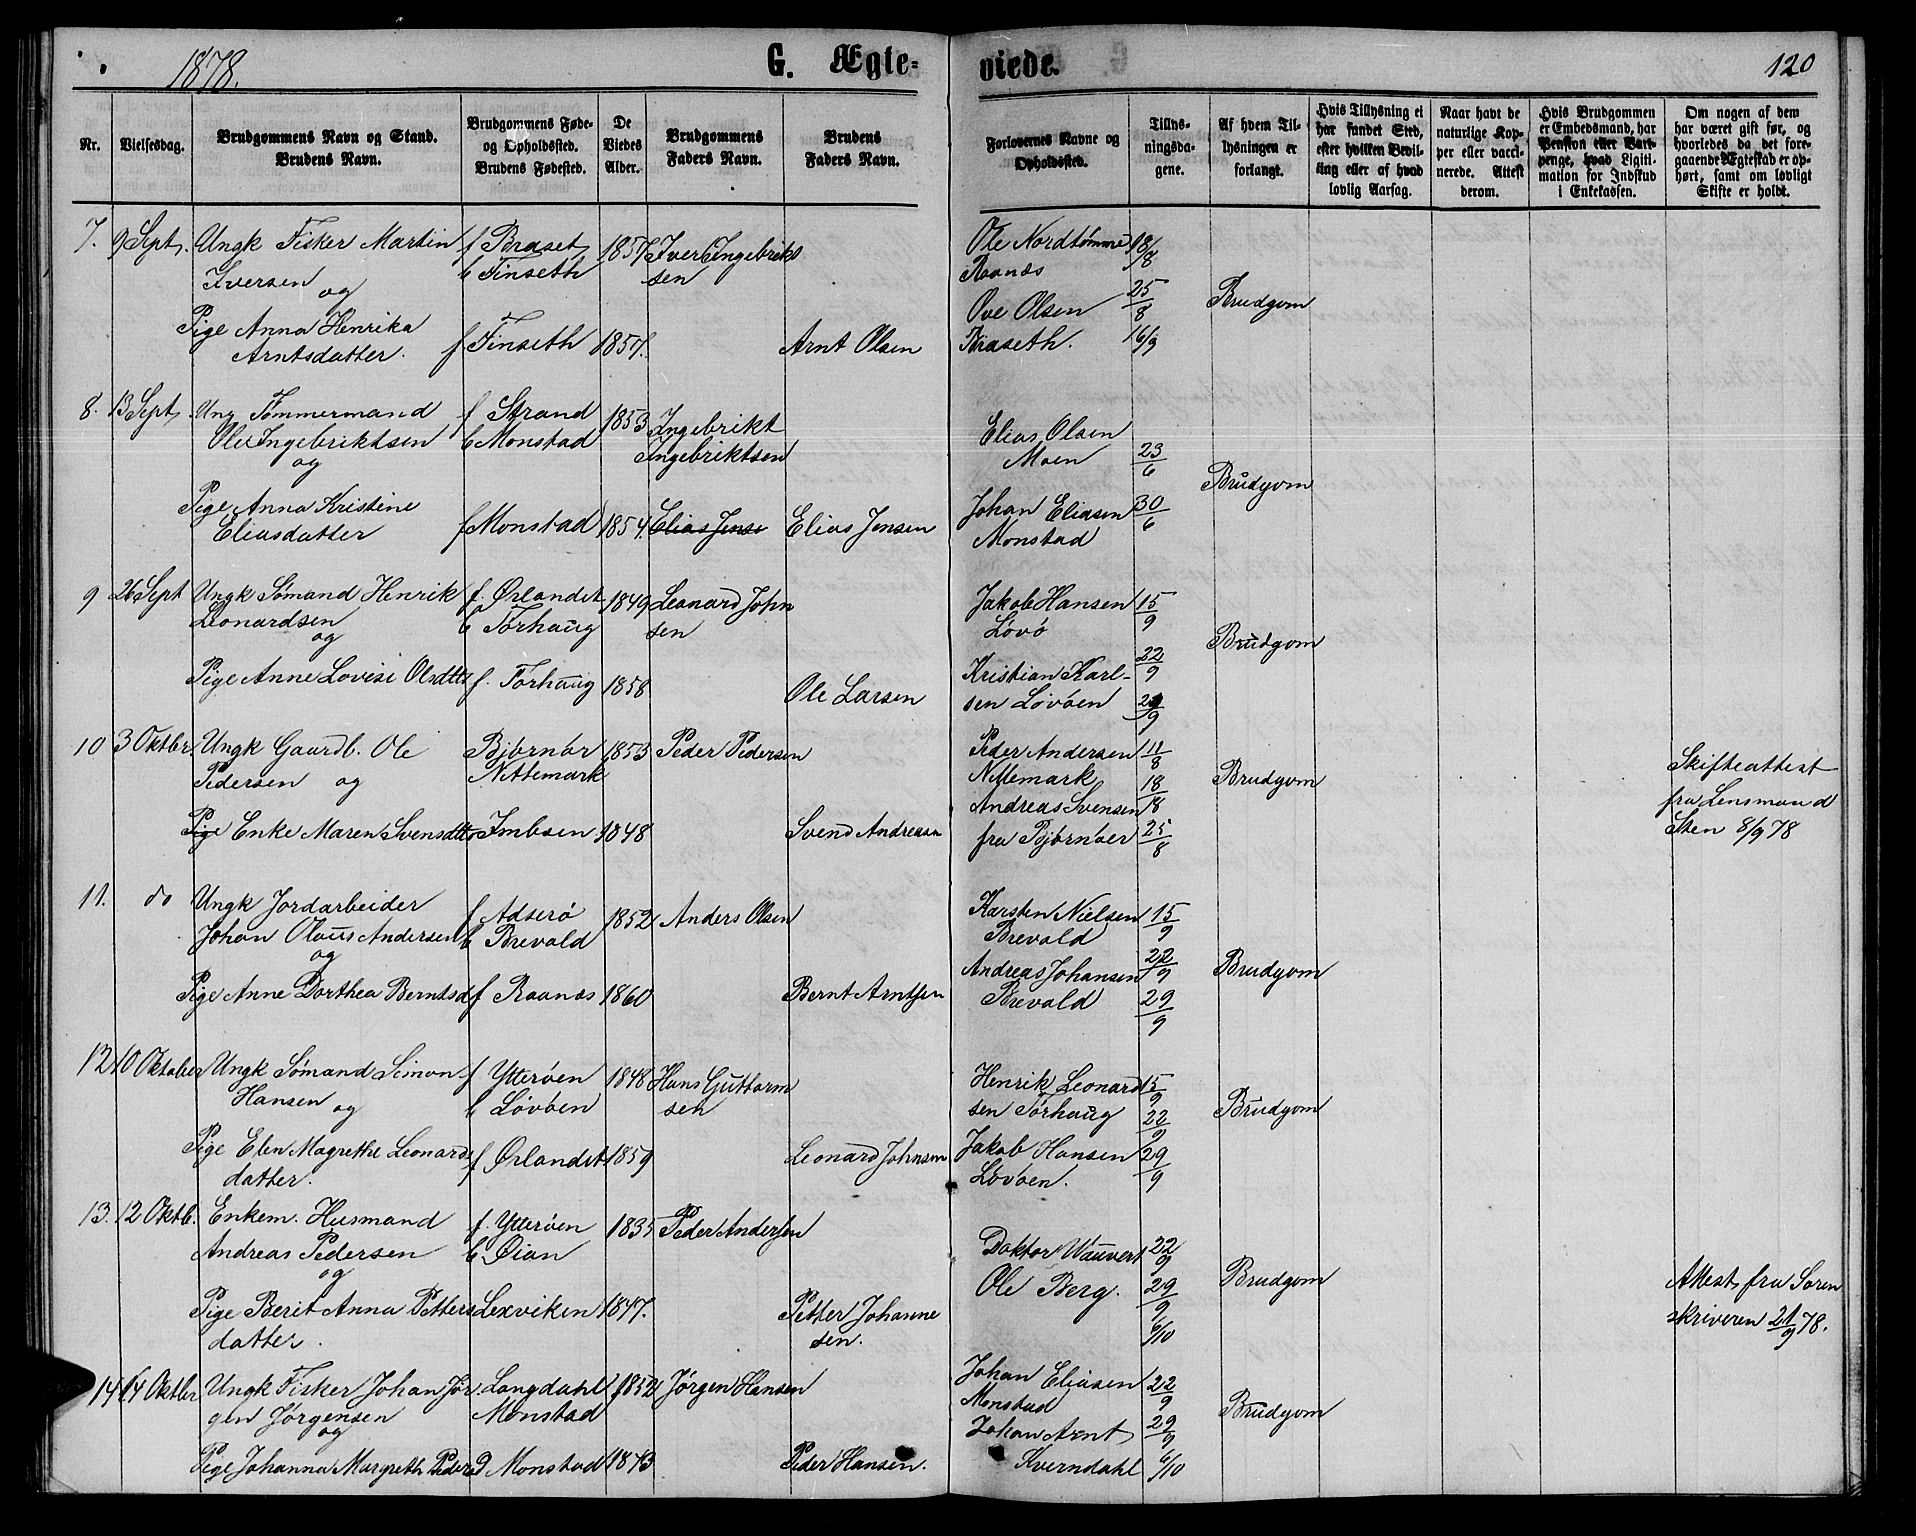 1878.
G. Ægte-
viede.
120
Nr.
Vielsesdag.
Brudgommens Navn og Stand.
Brudens Navn.
Brudgommens Føde-
og Opholdssted.
Brudens Fødested.
De
Viedes
Alder.
Brudgommens
Faders Navn.
Brudens
Faders Navn.
Forlovernes Navne og
Opholdssted.
Tillys-
ningsda-
gene.
Af hvem Til-
lysningen er
forlangt.
Hvis Tillysning ei
har fundet Sted,
efter hvilken Bevil-
ling eller af hvad
lovlig Aarsag.
Naar havt de
naturlige Kop-
per eller vacci-
nerede. Attest
derom.
Hvis Brudgommen
er Embedsmand, har
Pension eller Vart-
penge, hvad Ligiti-
mation for Indskud
i Enkekassen.
Om nogen af dem
har været gift før, og
hvorledes da det fore-
gaaende Ægteskab er op-
hørt, samt om lovligt
Skifte er holdt.
7. 9 Sept. Ungk Fisker Martin f Braset 1857 Iver Ingebrikt Ole Nordtømme 18/8
Iversen og b Finseth sen Raanes
25/8 Brudgom
Pige Anna Henrika Ove Olsen
Arntsdatter. f Finseth 1857. Arnt Olsen Braseth. 16/9
8. 13 Sept. Ung Tømmermand f Strand 1853 Ingebrikt Elias Olsen
Ole Ingebriktsen b Monstad Ingebriktsen Moen 23/6
og Brudgom
Pige Anna Kristine Johan Eliasen 30/6
Eliasdatter f Monstad 1854. Elias Jense Elias Jensen Monstad
9 26 Sept Ungk Sømand Henrik f. Ørlandet 1849 Leonard John Jakob Hansen 15/9
Leonardsen b Torhaug sen Løvø
og Brudgom
22/9
Pige Anne Lovise Olsdttr f. Torhaug 1858 Ole Larsen Kristian Karl-
sen Løvøen 29/9
10 3 Oktbr. Ungk Gaardb. Ole Bjørnør 1853 Peder Pedersen Peder Andersen 11/8 Skifteattest
Pedersen og Nittemark Nittemark 18 Brudgom fra Lensmand
Andreas Svensen 18 Sten 8/9 78
Pige Enke Maren Svensdttr Imbsen 1848 Svend Andreasen fra Bjørnøer 25/8
11. do Ungk Jordarbeider f Adserø 1852 Anders Olsen Karsten Nielsen 15/9
Johan Olaus Andersen b Brevold Brevold
og Andreas Johansen 22/9 Brudgom
Pige Anne Dorthea Berntsd f Raanes 1860 Bernt Arntsen Brevold 29/9
12. 10 Oktober Ungk Sømand Simon f Ytterøen 1848 Hans Guttorm Henrik Leonard 15/9
Hansen og b Løvøen sen sen Torhaug 22/9 Brudgom
Pige Elen Magrethe Leonards f Ørlandet 1859 Leonard Johnsen Jakob Hansen 29/9
datter. Løvøen.
13. 12 Oktb. Enkem. Husmand f. Ytterøen 1835 Peder Andersen Doktor Wauvert 22/9
Andreas Pedersen b. Øian Ole Berg. 29/9 Brudgom Attest fra Soren
og skriveren 21/9 78.
Pige Berit Anna Petters Lexviken 1847. Petter Johanne 6/10
datter. sen.
14 14 Oktbr Ungk Fisker Johan Jør Langdahl 1852 Jørgen Hansen Johan Eliasen 22/9
gen Jørgensen Monstad Monstad Brudgom
og Johan Arnt 29/9
Pige Johanna Margreth Peders d Monstad 1843 Peder Hansen. Kverndahl 6/10